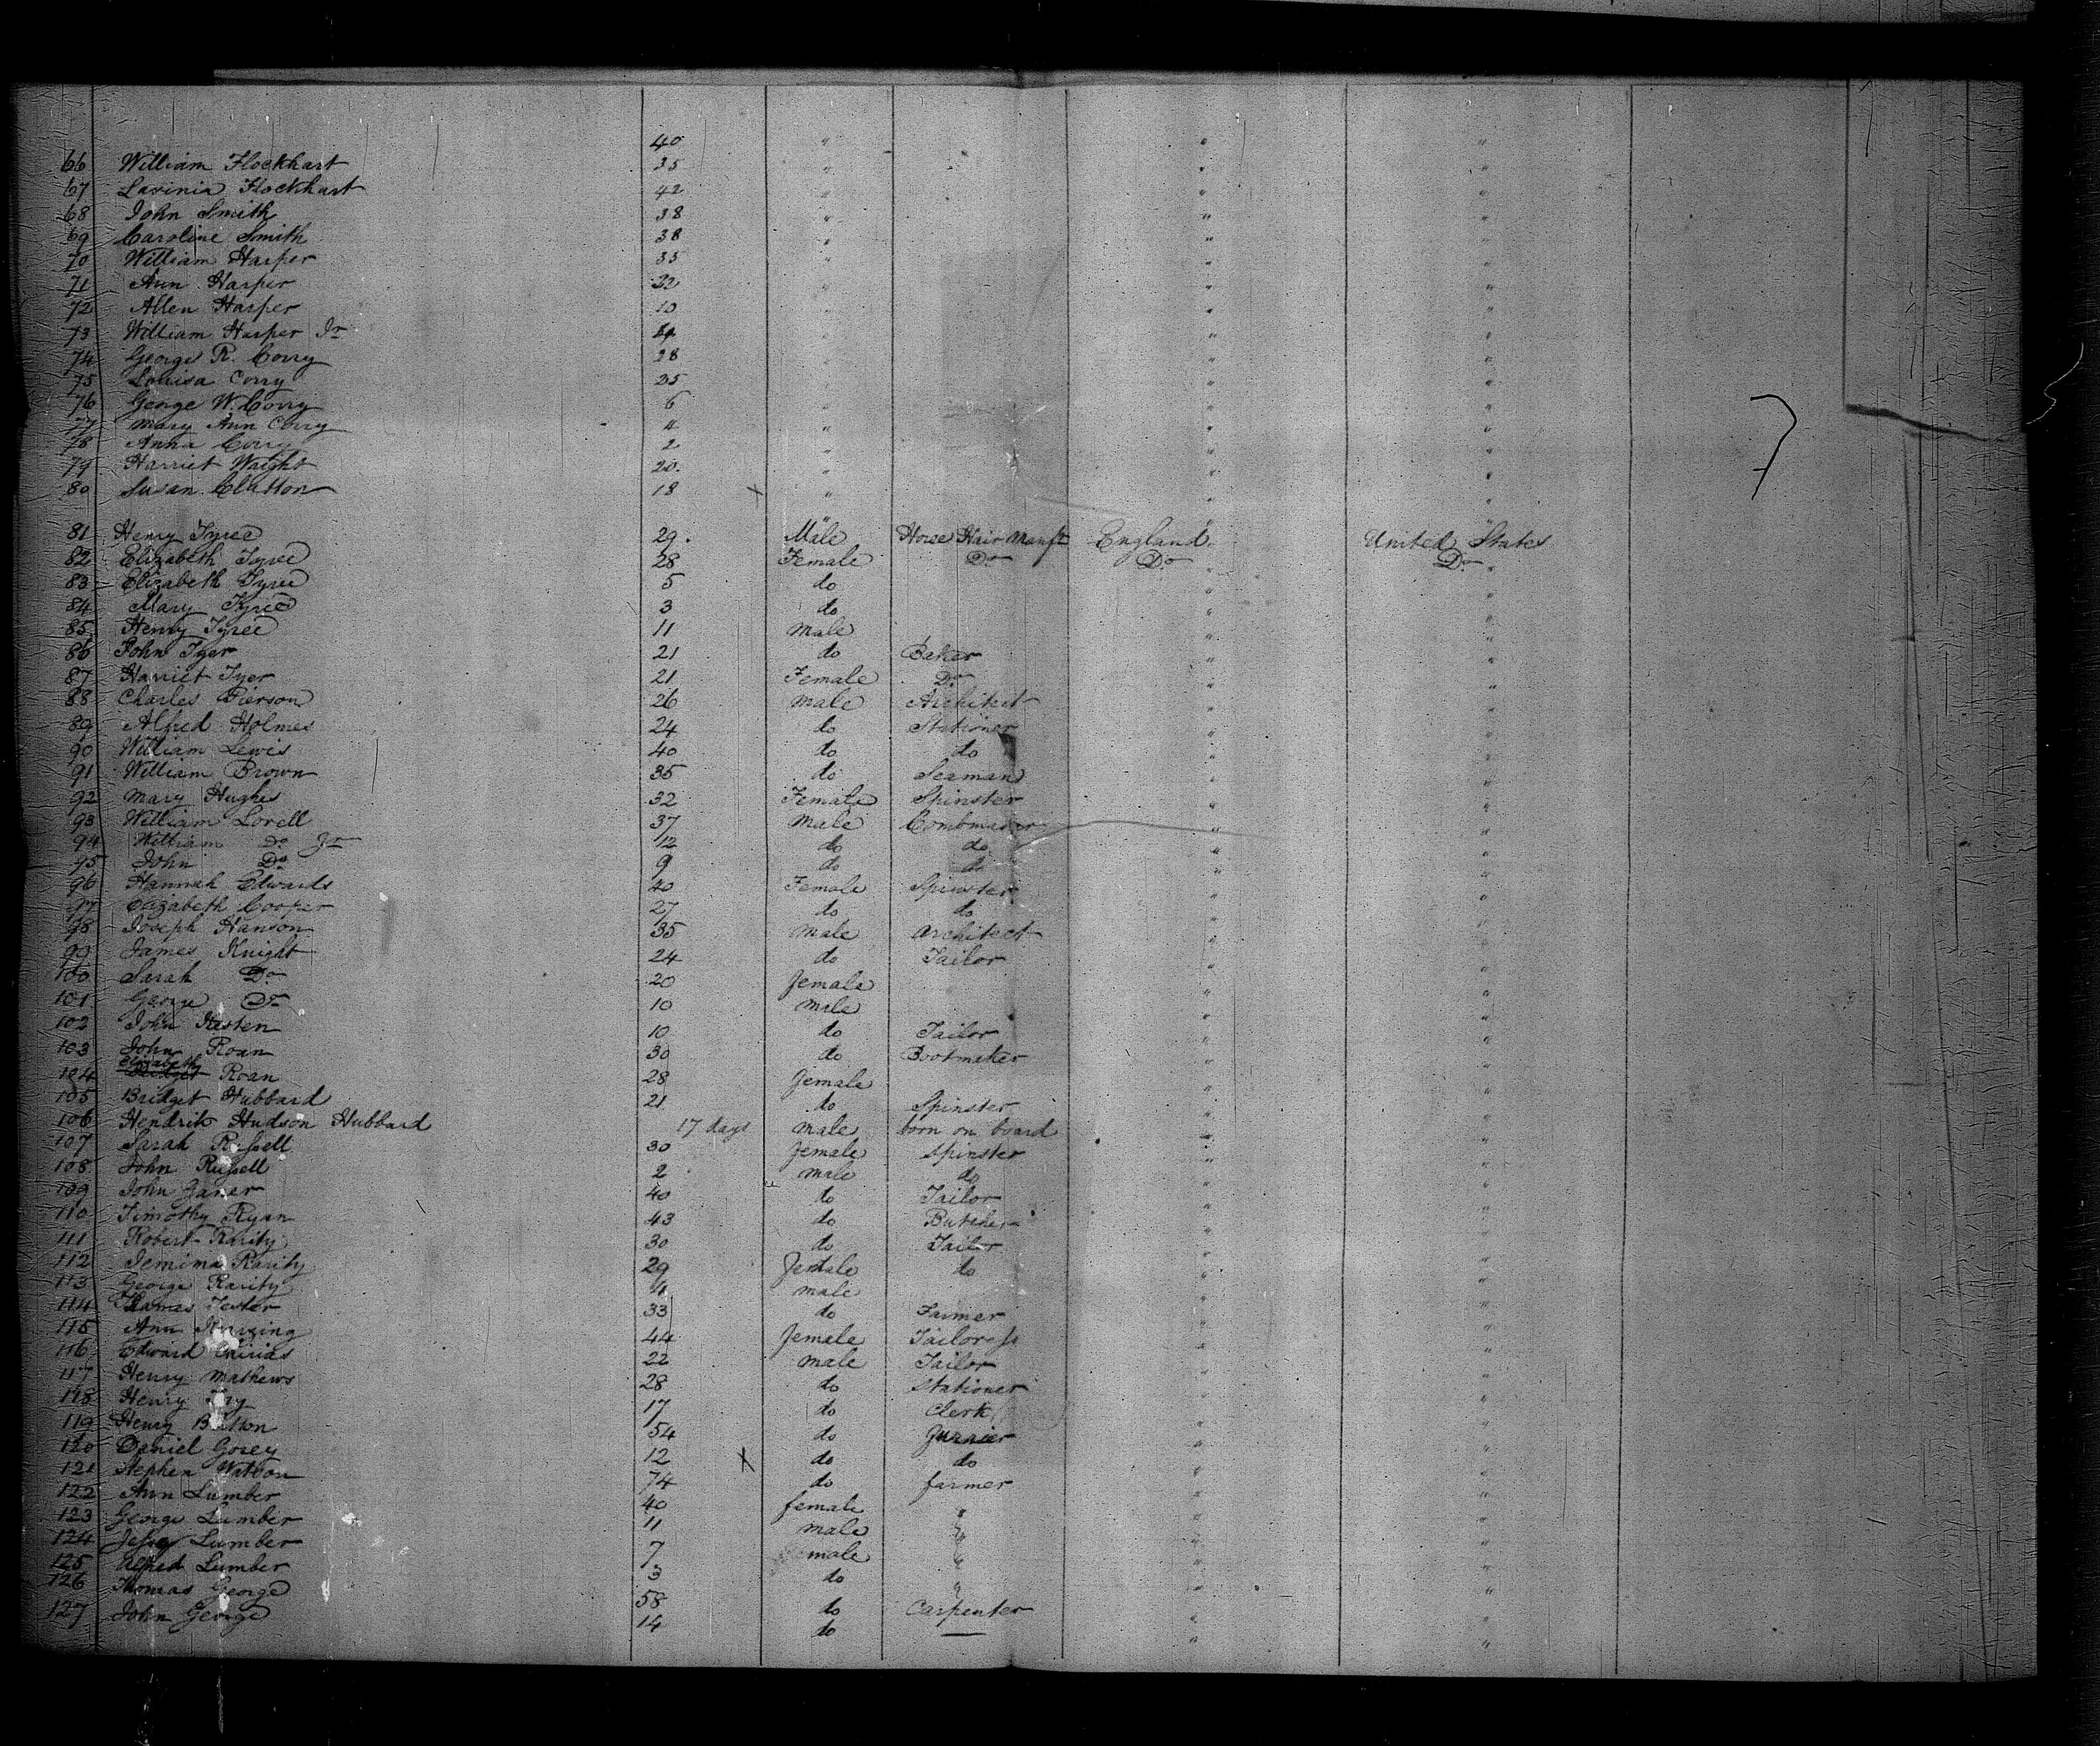 40 " " "
66 William Flockhart 35 " " "
67 Lavinia Flockhart 42 " " "
68 John Smith 38 " " "
69 Caroline Smith 38 " " "
70 William Harper 35 " " "
71 Ann Harper 32 " " "
72 Allen Harper 10 " " "
73 William Harper Jr 14 " " "
74 George R. Corry 28 " " "
75 Louisa Corry 25 " " "
76 George W. Corry 6 " " "
77 Mary Ann Corry 4 " " "
78 Anna Corry 2 " " "
79 Harriet Waight 20 " " "
80 Susan Clutton 18 " " "
81 Henry Tyree 29 Male Horse Hair Manfr England United States
82 Elizabeth Tyree 28 Female Do Do Do
83 Elizabeth Tyree 5 do " "
84 Mary Tyree 3 do " "
85 Henry Tyree 11 male " "
86 John Tyer 21 do Baker " "
87 Harriet Tyer 21 Female Do " "
88 Charles Pierson 26 male Architect " "
89 Alfred Holmes 24 do Stationer " "
90 William Lewis 40 do do " "
91 William Brown 35 do Seaman " "
92 Mary Hughes 32 Female Spinster " "
93 William Lovell 37 male Combmaker " "
94 William Do Jr 12 do do " "
95 John Do 9 do do " "
96 Hannah Edwards 40 Female Spinster " "
97 Elizabeth Cooper 27 do do " "
98 Joseph Hanson 35 male architect " "
99 James Knight 24 do Tailor " "
100 Sarah Do 20 female " "
101 George Do 10 male " "
102 John Hesten 10 do Tailor " "
103 John Roan 30 do Bootmaker " "
104 Elizabeth Roan 28 female " "
105 Bridget Hubbard 21 do Spinster " "
106 Hendrik Hudson Hubbard 17 days male born on board " "
107 Sarah Russell 30 female spinster " "
108 John Russell 2 male do " "
109 John 40 do Tailor " "
110 Timothy Ryan 43 do Butcher " "
111 Robert Rarity 30 do Tailor " "
112 Jemima Rarity 29 female do " "
113 George Rarity 4 male " "
114 Thomas Tester 33 do Farmer " "
115 Ann 44 female Tailoress " "
116 Edward 22 male Tailor " "
117 Henry Mathews 28 do Stationer " "
118 Henry 17 do Clerk " "
119 Henry 54 do " "
120 Daniel Gosey 12 do do " "
121 Stephen Watson 74 do farmer " "
122 Ann Lumber 40 female " " "
123 George Lumber 11 male " " "
124 Jessey Lumber 7 male " " "
125 Alfred Lumber 3 do " " "
126 Thomas George 58 do Carpenter " "
127 John George 14 do — " "